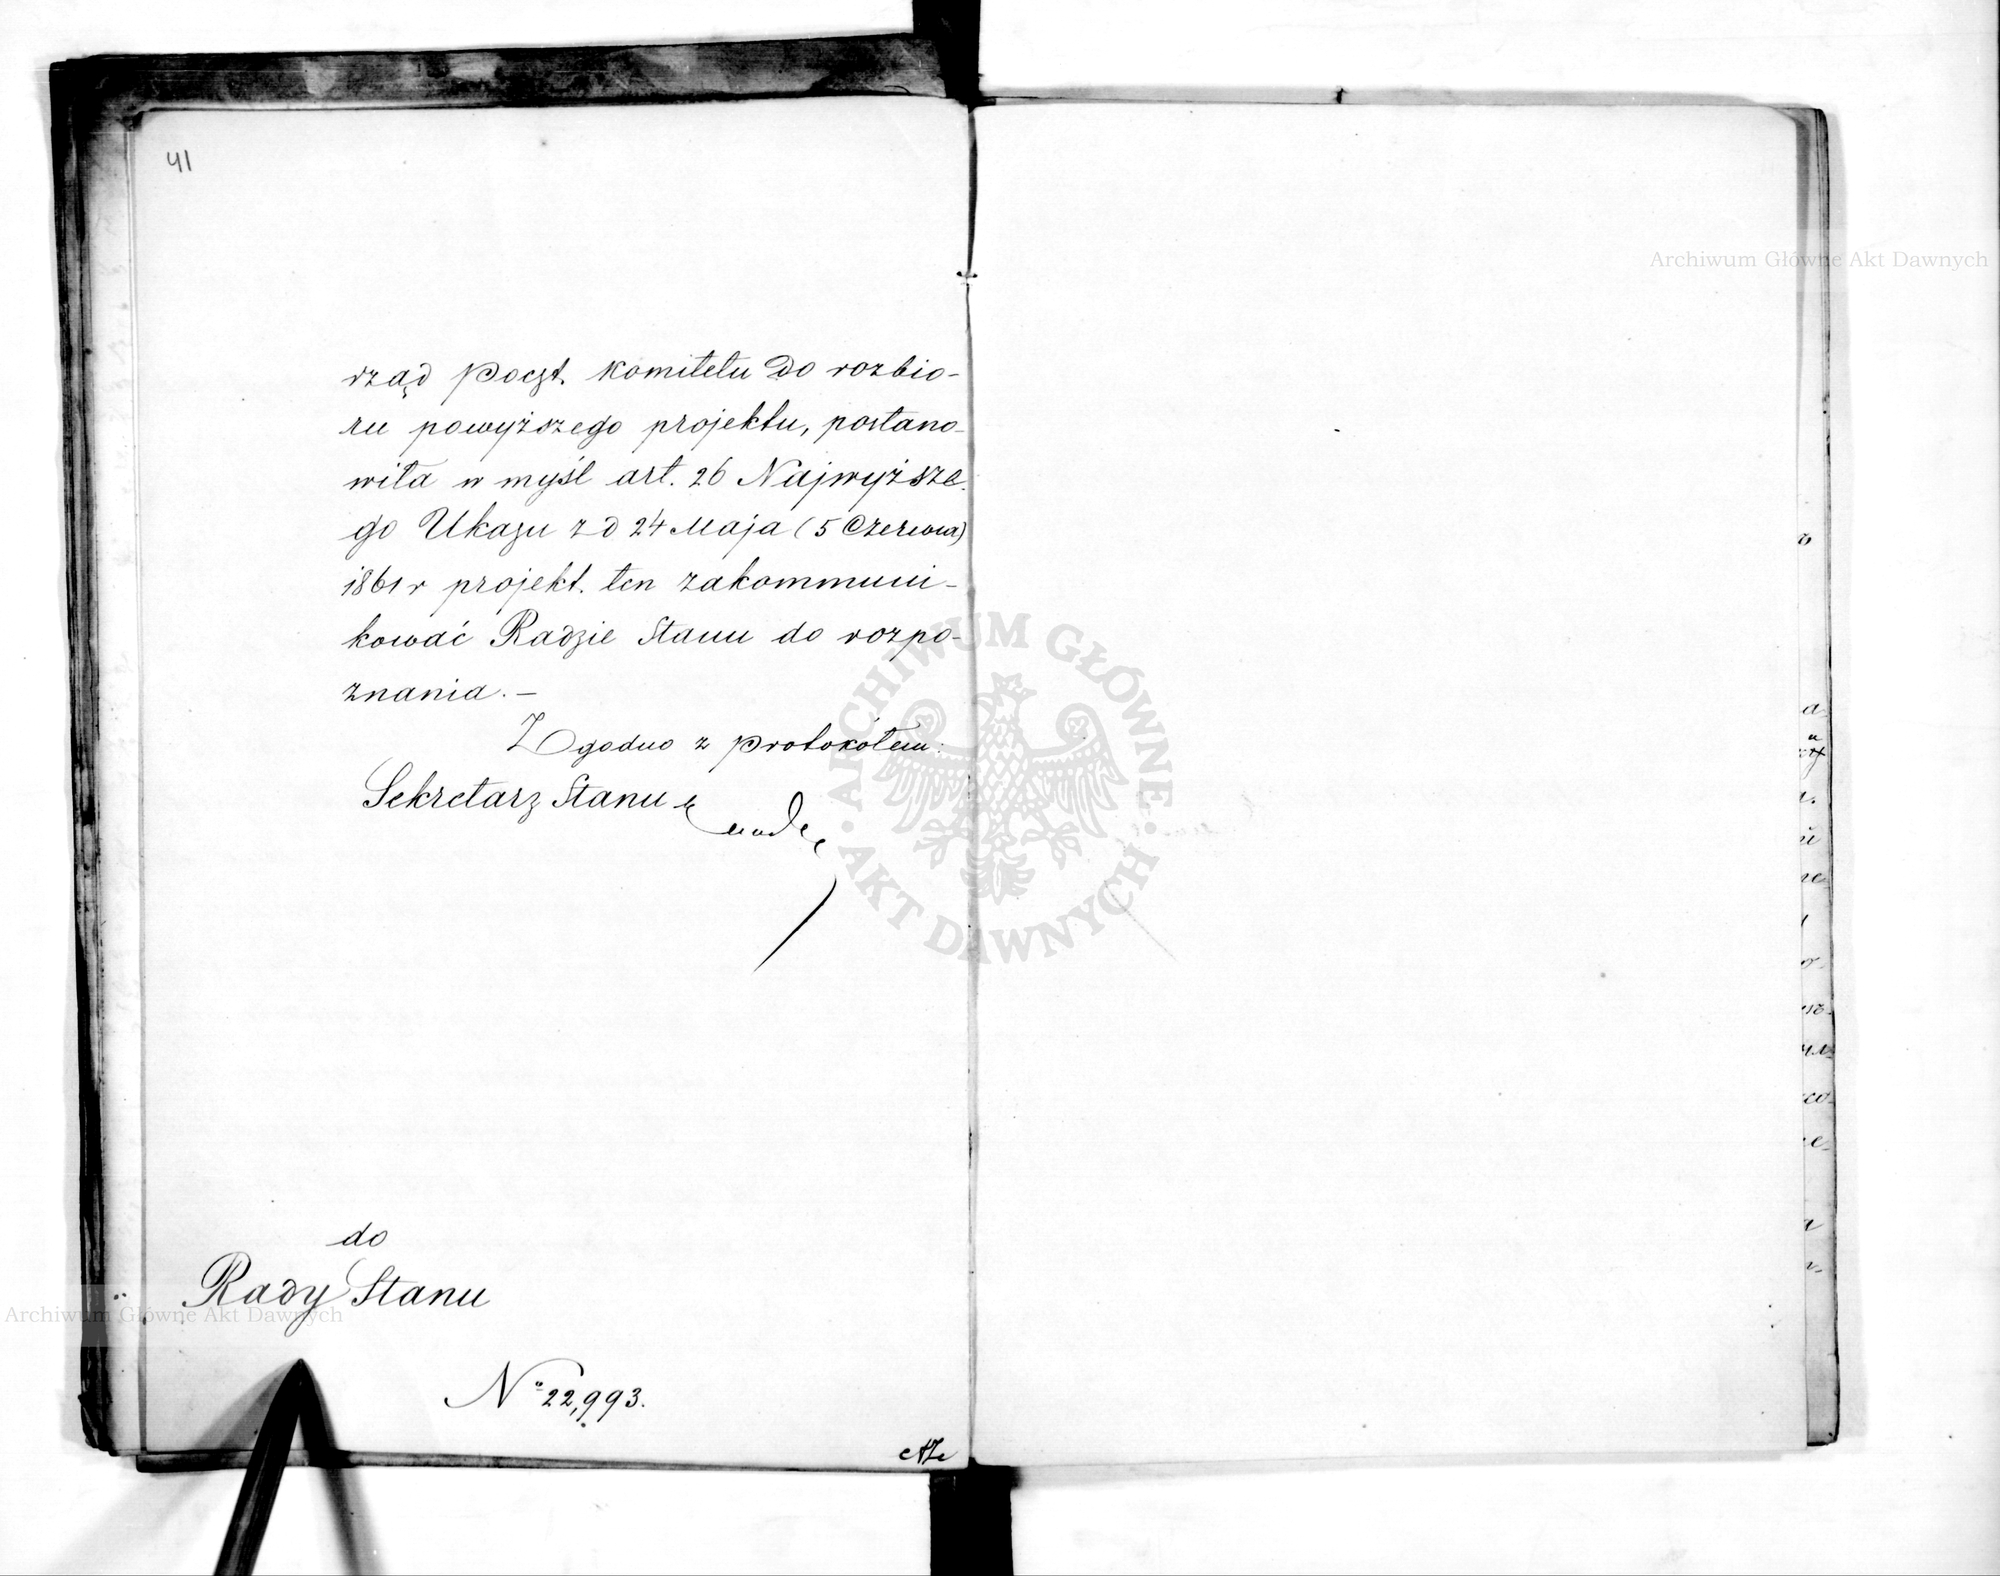 41
rząd Poczt. Komitetu Do rozbio-
ru powyższego projektu, postano-
wiła w myśl art. 26 Najwyższe-
go Ukazu z d 24 Maja (5 Czerwca)
1861 r projekt. ten zakommuni-
kować Radzie Stanu do rozpo-
znania. -
Zgodno z protokółem:
Sekretarz Stanu
do
Rady Stanu
No 22,993.
Archiwum Główne Akt Dawnych
Archiwum Główne Akt Dawnych
ARCHIWUM GŁÓWNE
AKT DAWNYCH